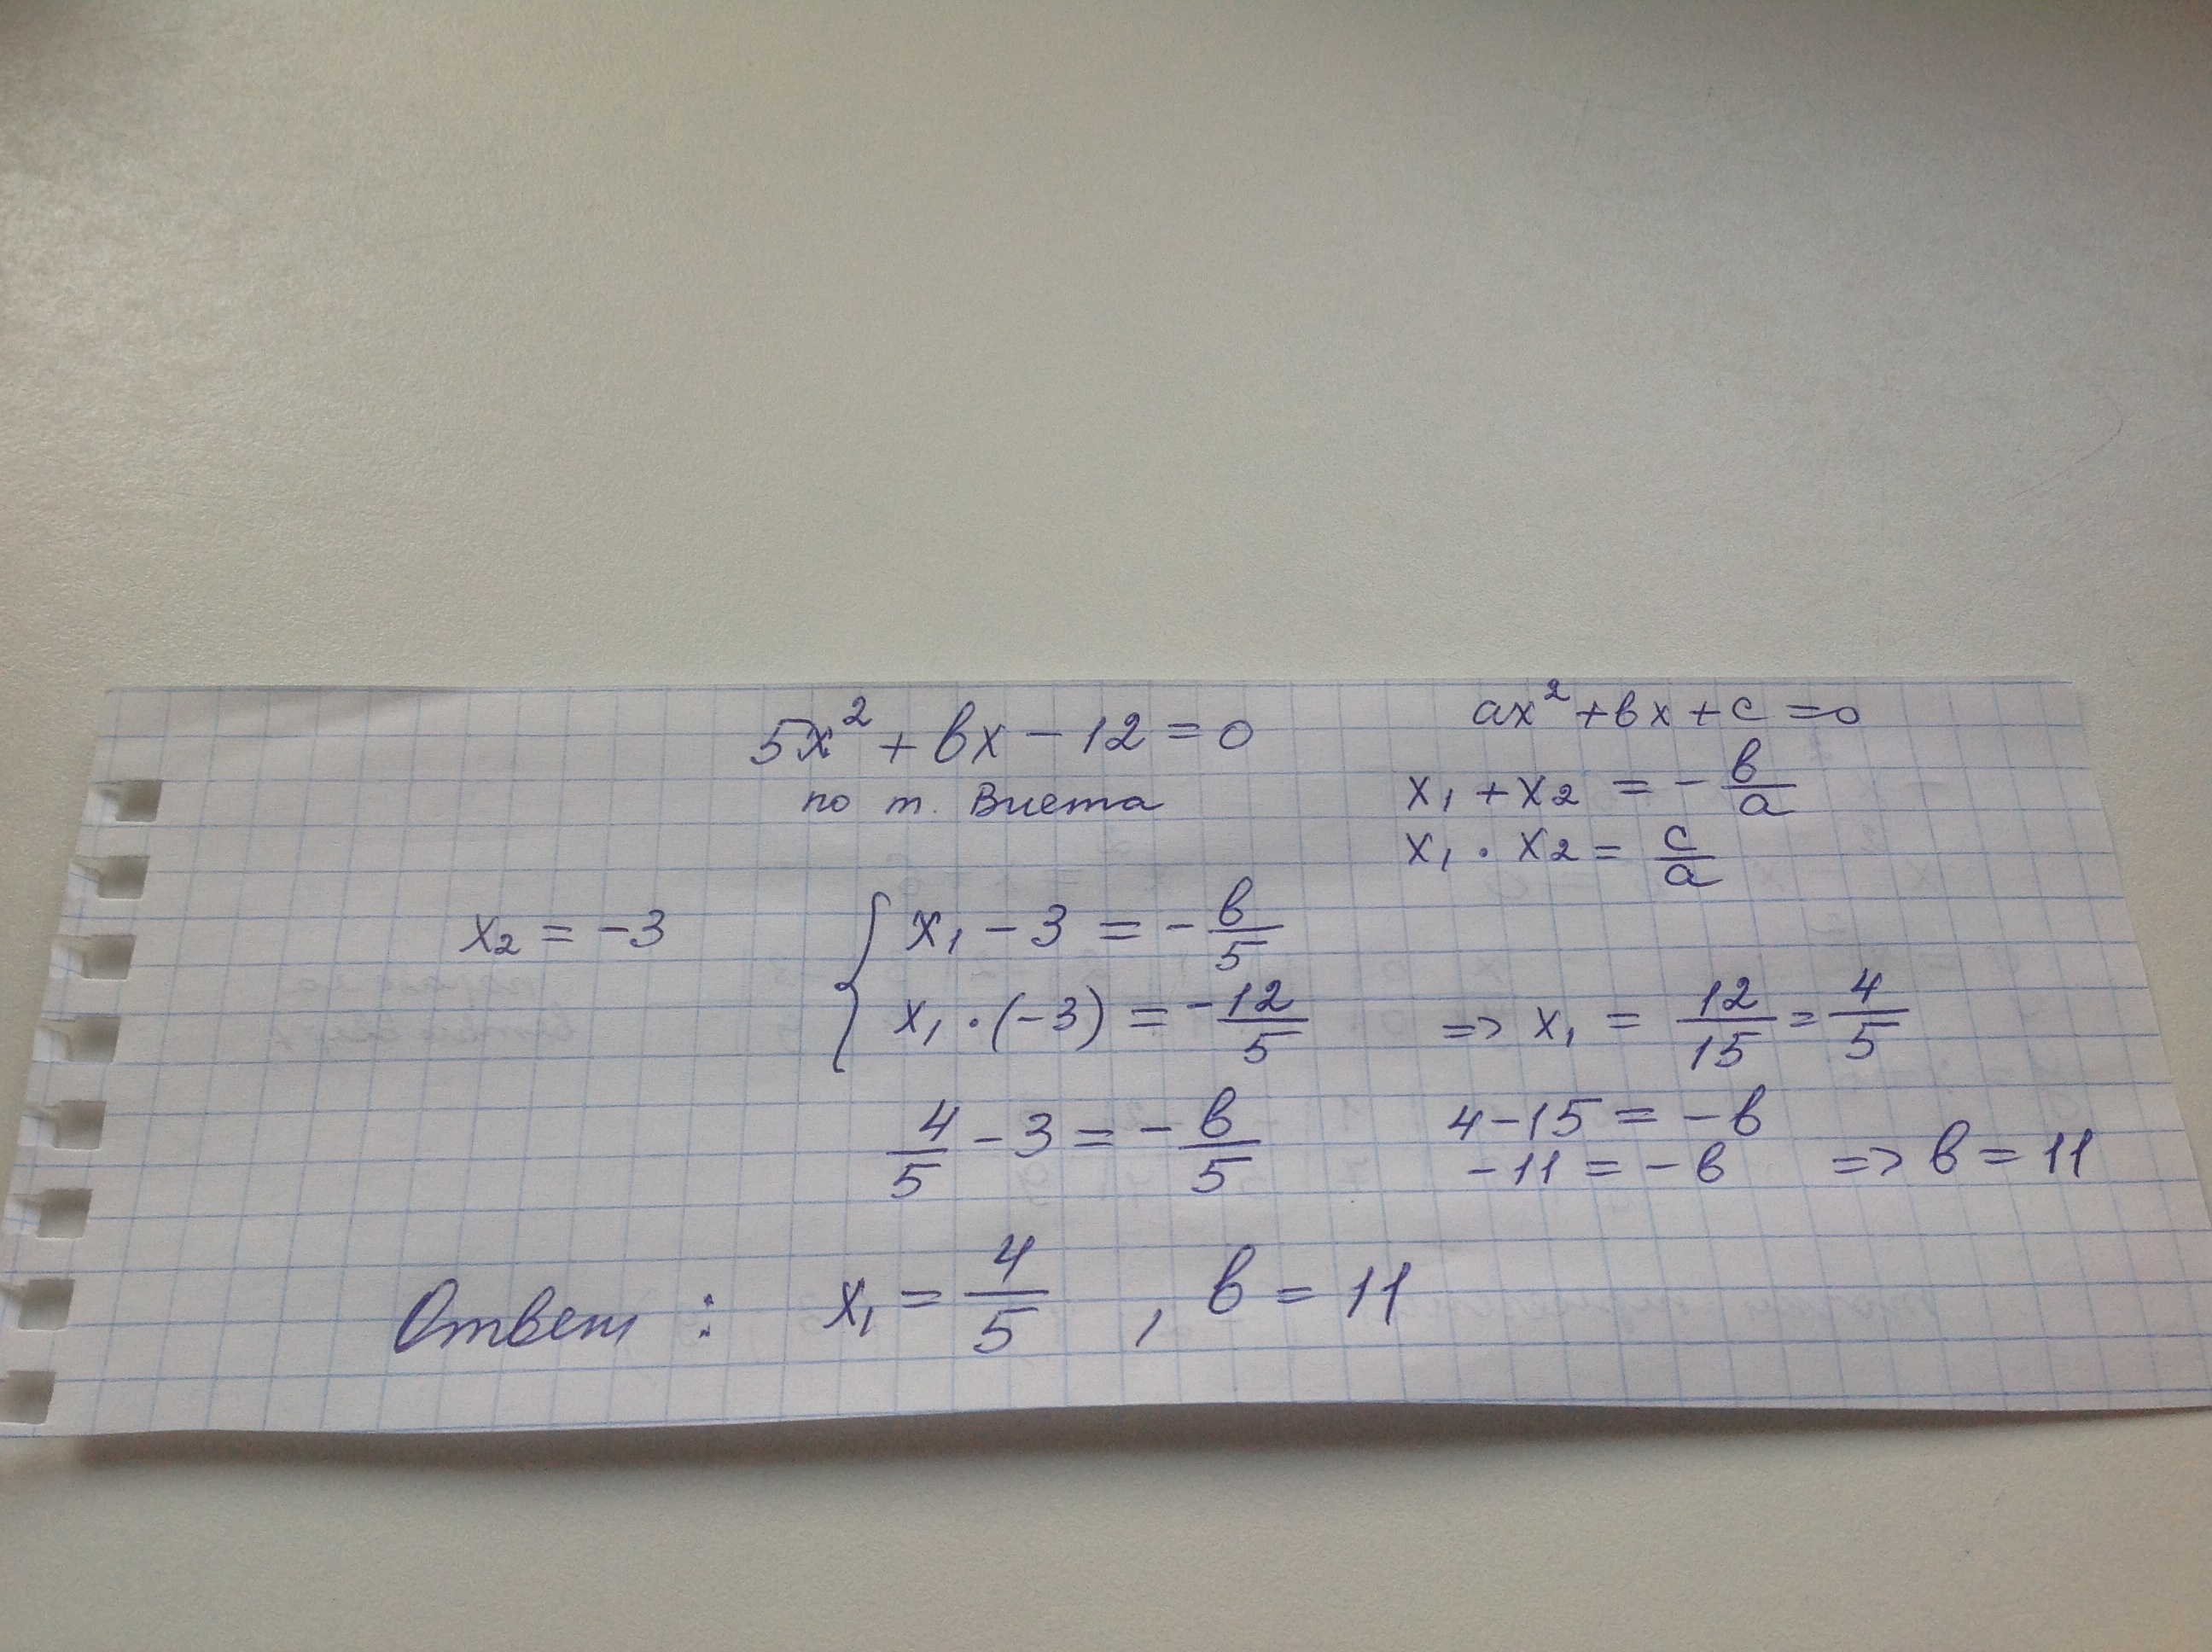 5x² + bx − 12 = 0
ax² + bx + c = 0
по т. Виета
x₁ + x₂ = − b/a
x₁ · x₂ = c/a
x₂ = −3
x₁ − 3 = − b/5
x₁ · (−3) = − 12/5 => x₁ = 12/15 = 4/5
4/5 − 3 = − b/5
4 − 15 = − b
−11 = − b => b = 11
Ответ : x₁ = 4/5 , b = 11